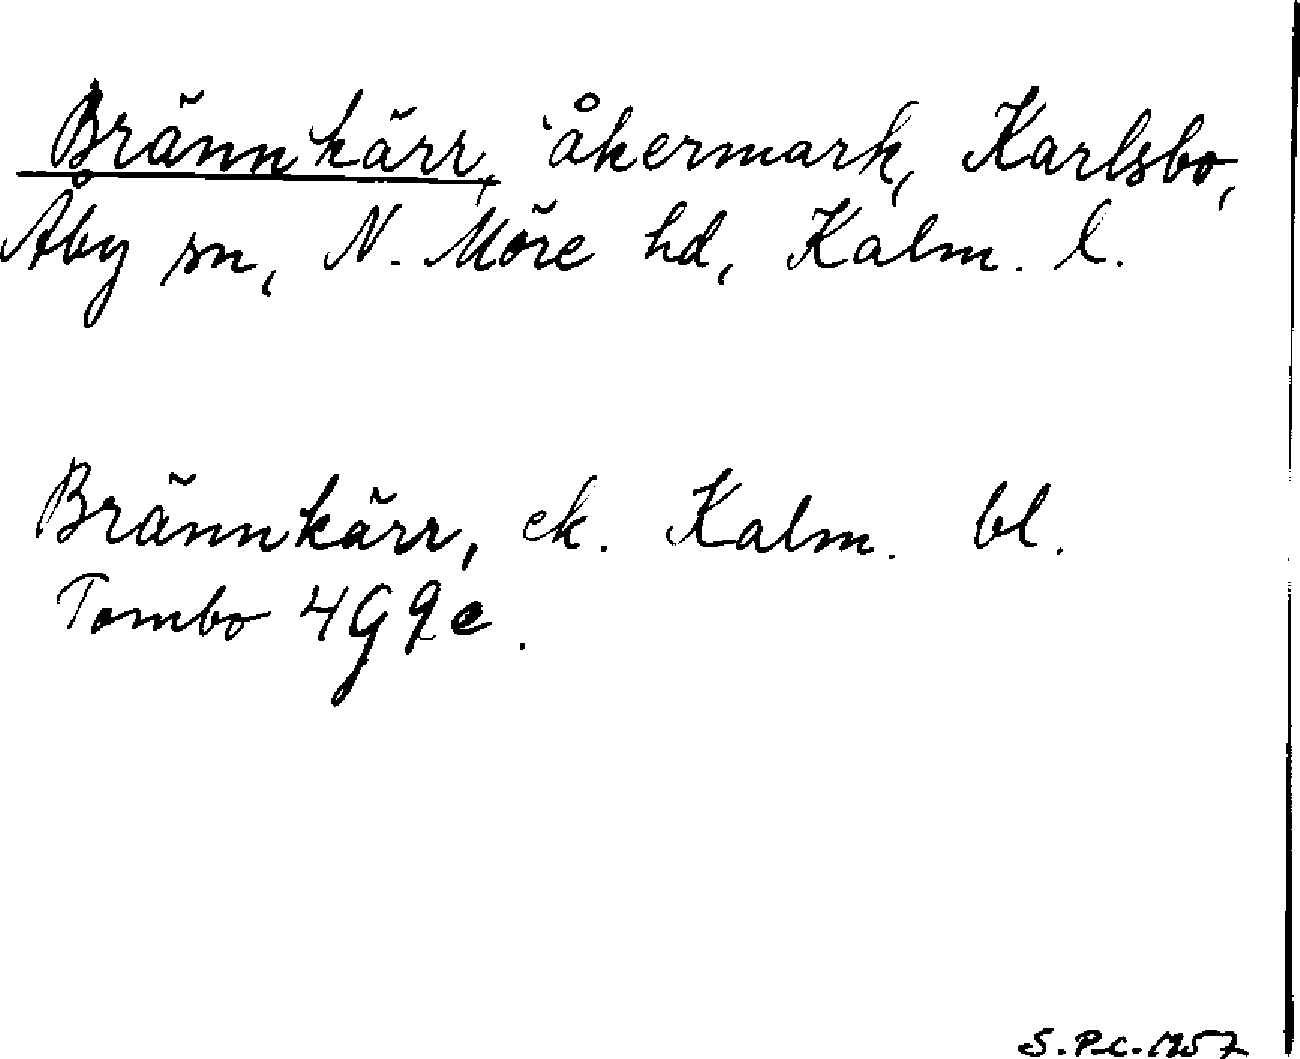 Brännkärr, åkermark, Karlsbo,
Åby sn, N. Möre hd, Kalm. l.
Brännkärr, ek. Kalm. bl.
Tombo 4G9e.
S.P.C. 1957